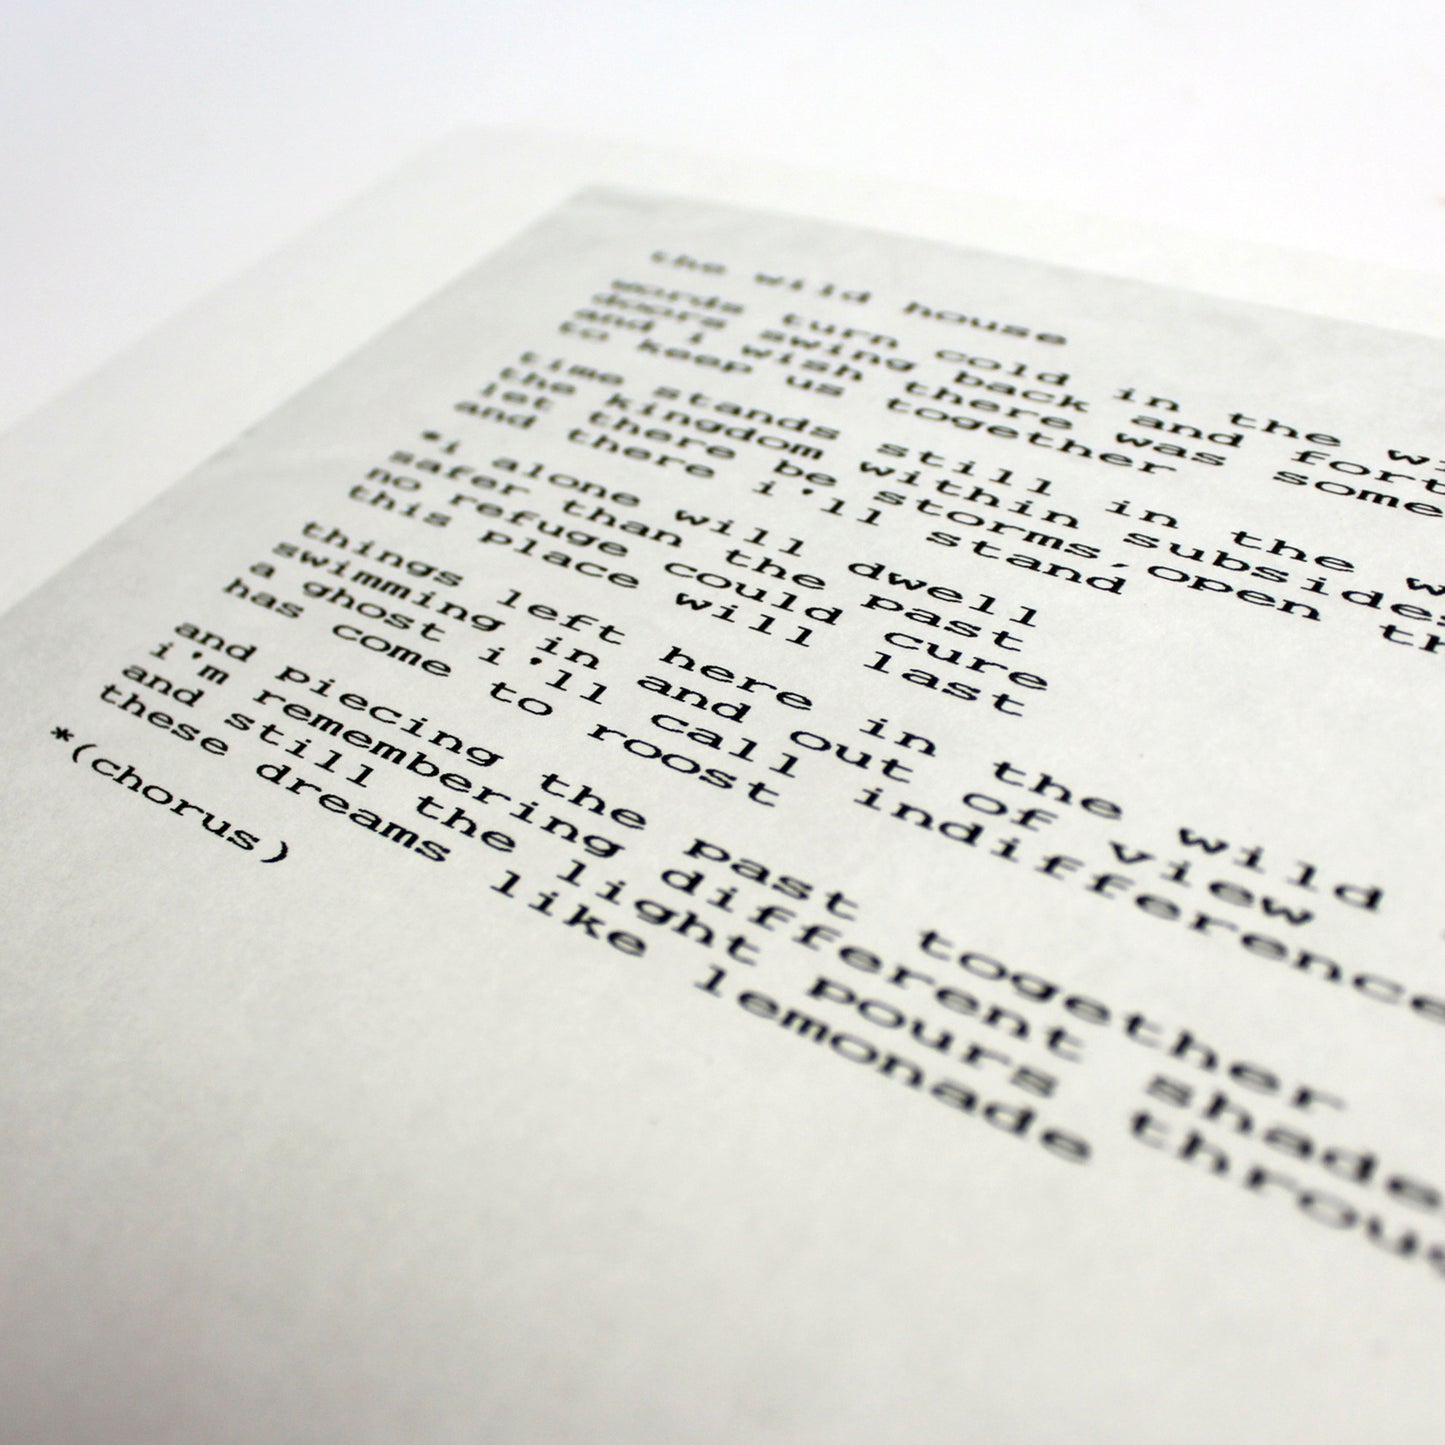 the wild house
words turn cold in the
doors swing back and
and i wish there was some
to keep us together
time stands still in the
the kingdom within subsides
let there be storms, open
and there i'll stand
*i alone will dwell
safer than the past
no refuge could cure
this place will last
things left here in the wild
swimming in and out of view
a ghost i'll call indifference
has come to roost
and piecing the past together
i'm remembering different
and still the light pours
these dreams like lemonade
*(chorus)